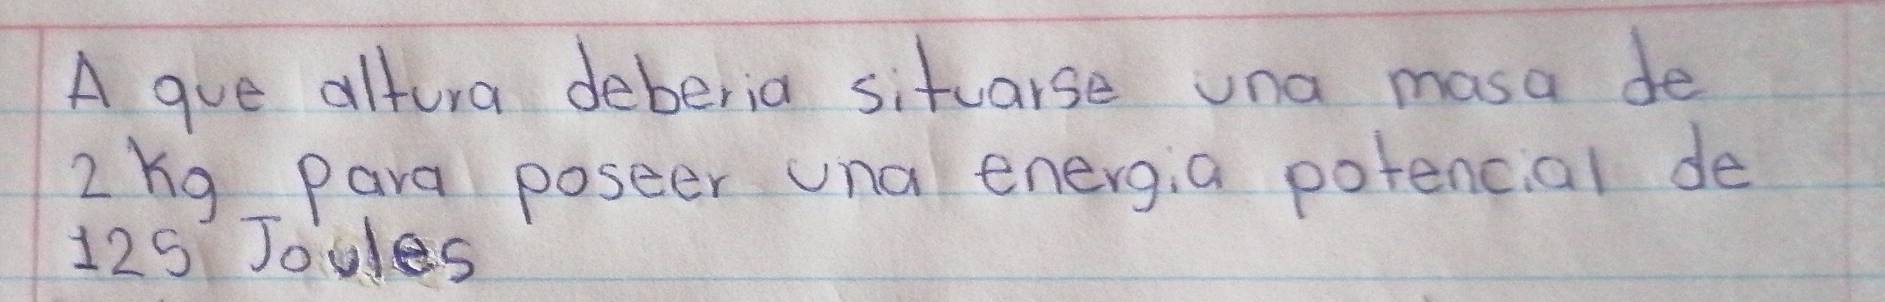 A que altura deberia situarse una masa de
2 Kg para poseer una energia potencial de
125 Joules